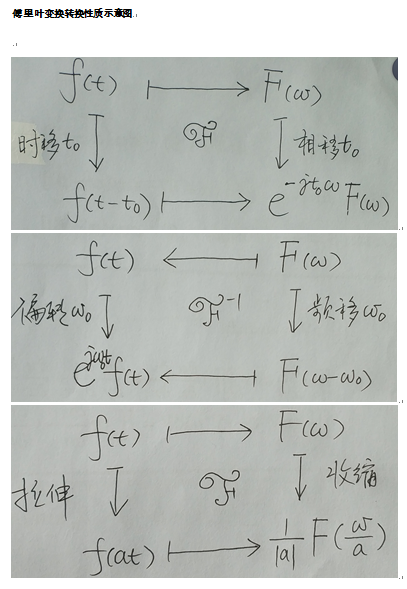 傅里叶变换转换性质示意图
f(t) ⟼ F(ω)
时移t₀ 𝓕 相移t₀
f(t-t₀) ⟼ e^{-jt₀ω} F(ω)
f(t) ⟻ F(ω)
偏转ω₀ 𝓕⁻¹ 频移ω₀
e^{jω₀t} f(t) ⟻ F(ω-ω₀)
f(t) ⟼ F(ω)
拉伸 𝓕 收缩
f(at) ⟼ 1/|a| F(ω/a)